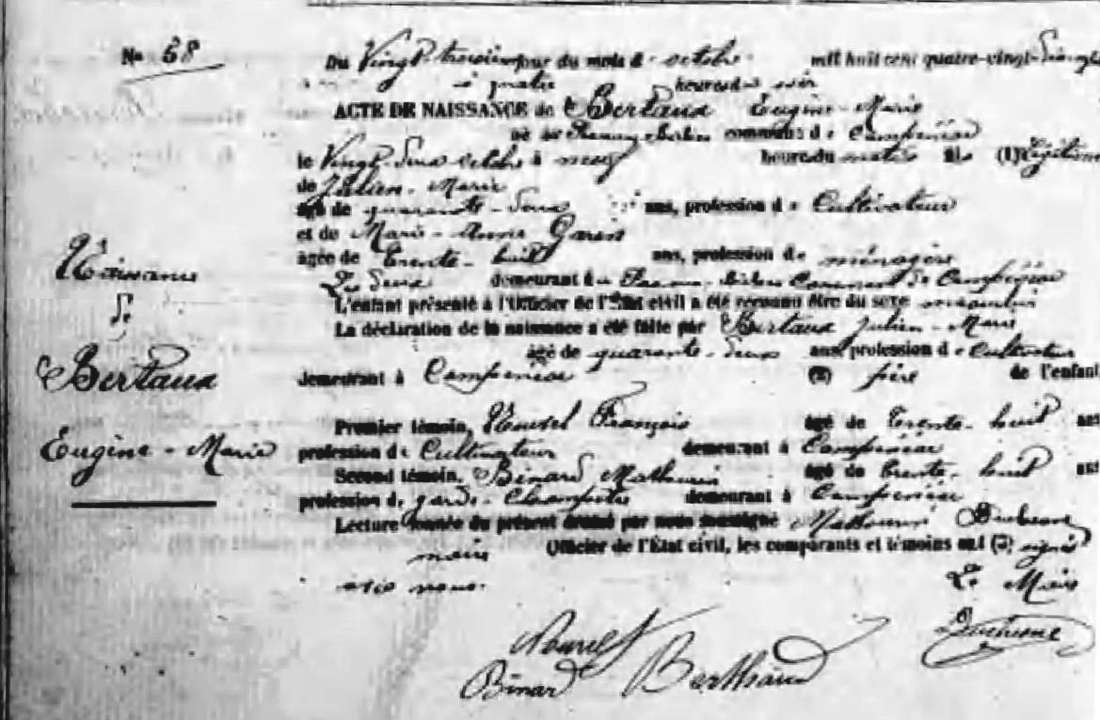 No 68
Du Vingt troisième jour du mois d'octobre mil huit cent quatre-vingt-
à quatre heures du soir
ACTE DE NAISSANCE de Bertaud Eugène-Marie
né au commune de Campénéac
le Vingt deux octobre à neuf heures du matin fils (1) légitime
de Julien-Marie
âgé de quarante-deux ans, profession de Cultivateur
et de Marie-Anne Garin
âgée de trente-huit ans, profession de ménagère
Les deux demeurant du Commune de Campénéac
L'enfant présenté à l'Officier de l'État civil a été reconnu être du sexe masculin
La déclaration de la naissance a été faite par Bertaud Julien-Marie
âgé de quarante-deux ans, profession de Cultivateur
demeurant à Campénéac (2) père de l'enfant
Premier témoin, François âgé de trente-huit ans
profession de Cultivateur demeurant à Campénéac
Second témoin, Binard Mathurin âgé de trente-huit ans
profession de garde-Champêtre demeurant à Campénéac
Lecture donnée du présent par nous soussigné Mathurin Duchesne
maire Officier de l'État civil, les comparants et témoins ont (3) signé
avec nous.
Le Maire
Naissance
de
Bertaud
Eugène-Marie
Duchesne
Binard Berthaud